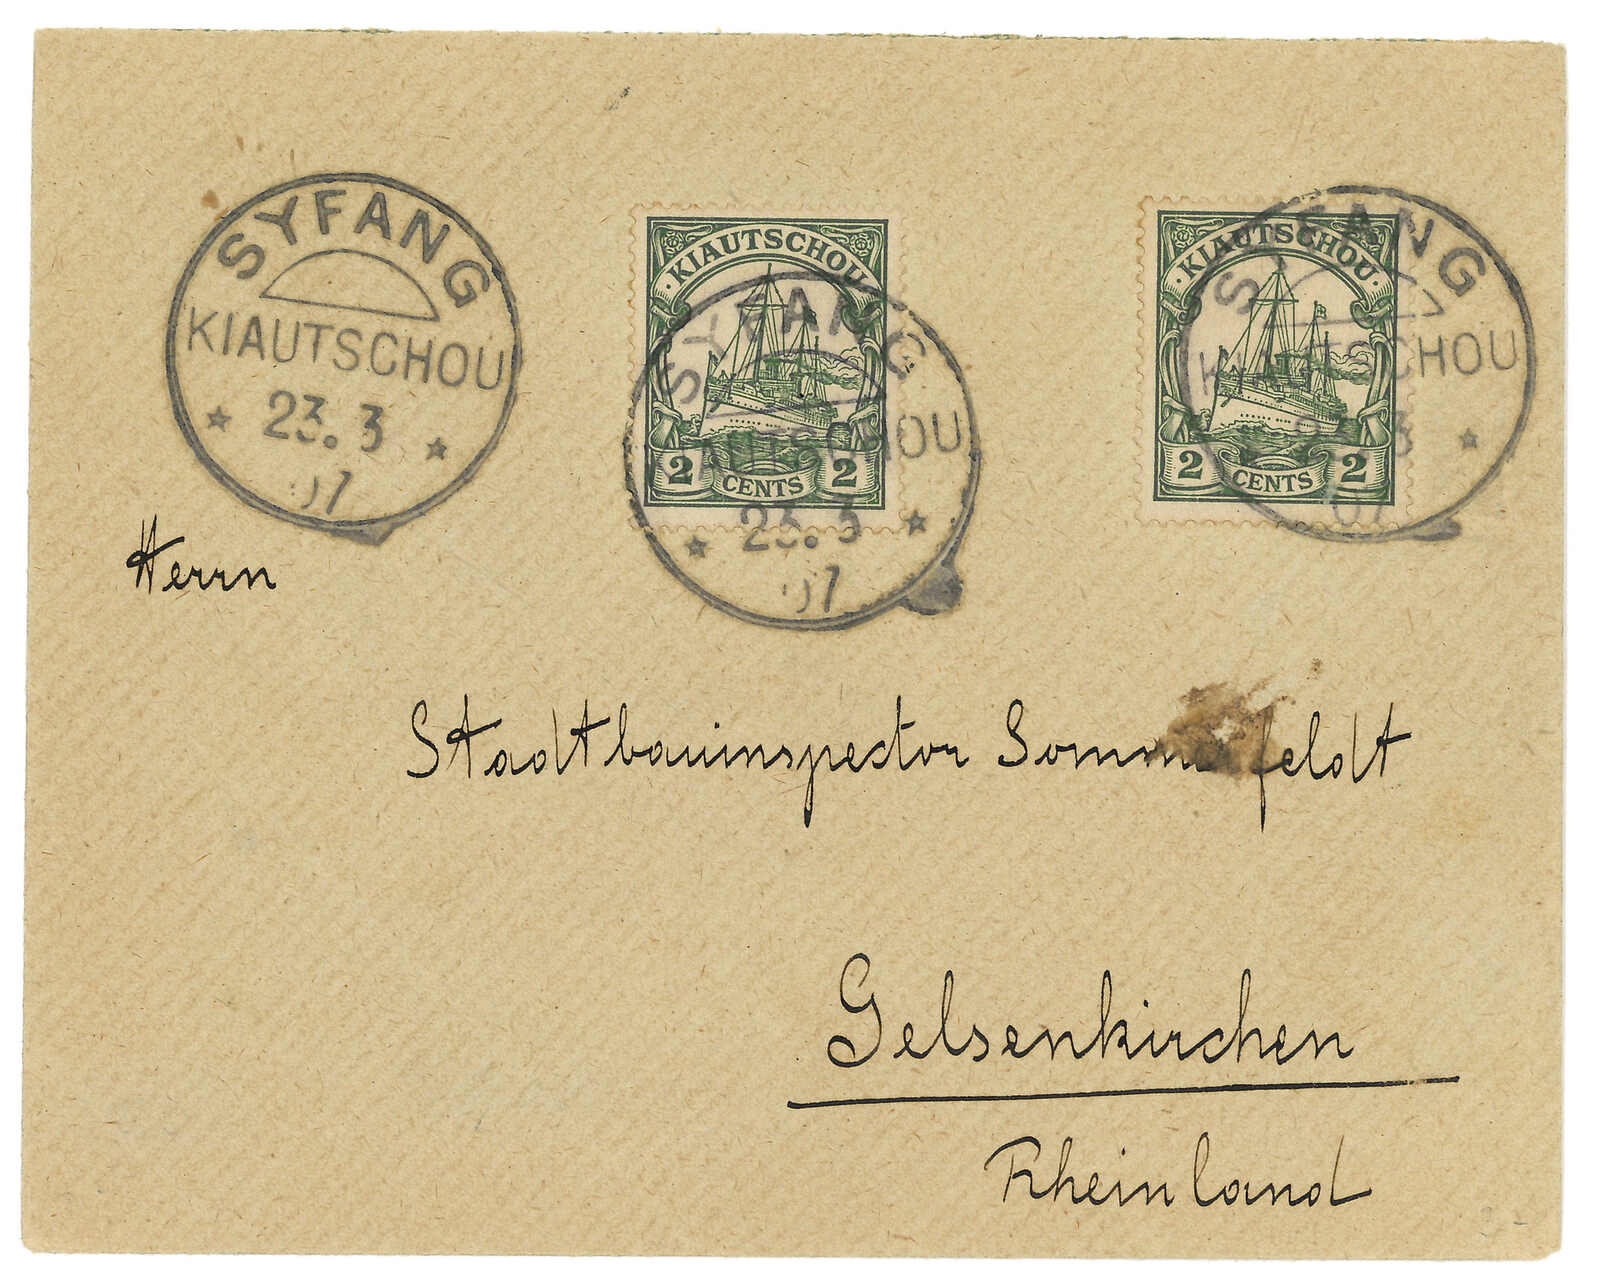 SYFANG
KIAUTSCHOU
23.3
07
KIAUTSCHOU
2 CENTS 2
SYFANG
KIAUTSCHOU
23.3
07
KIAUTSCHOU
2 CENTS 2
SYFANG
KIAUTSCHOU
23.3
07
Herrn
Stadtbauinspector Sommerfeldt
Gelsenkirchen
Rheinland